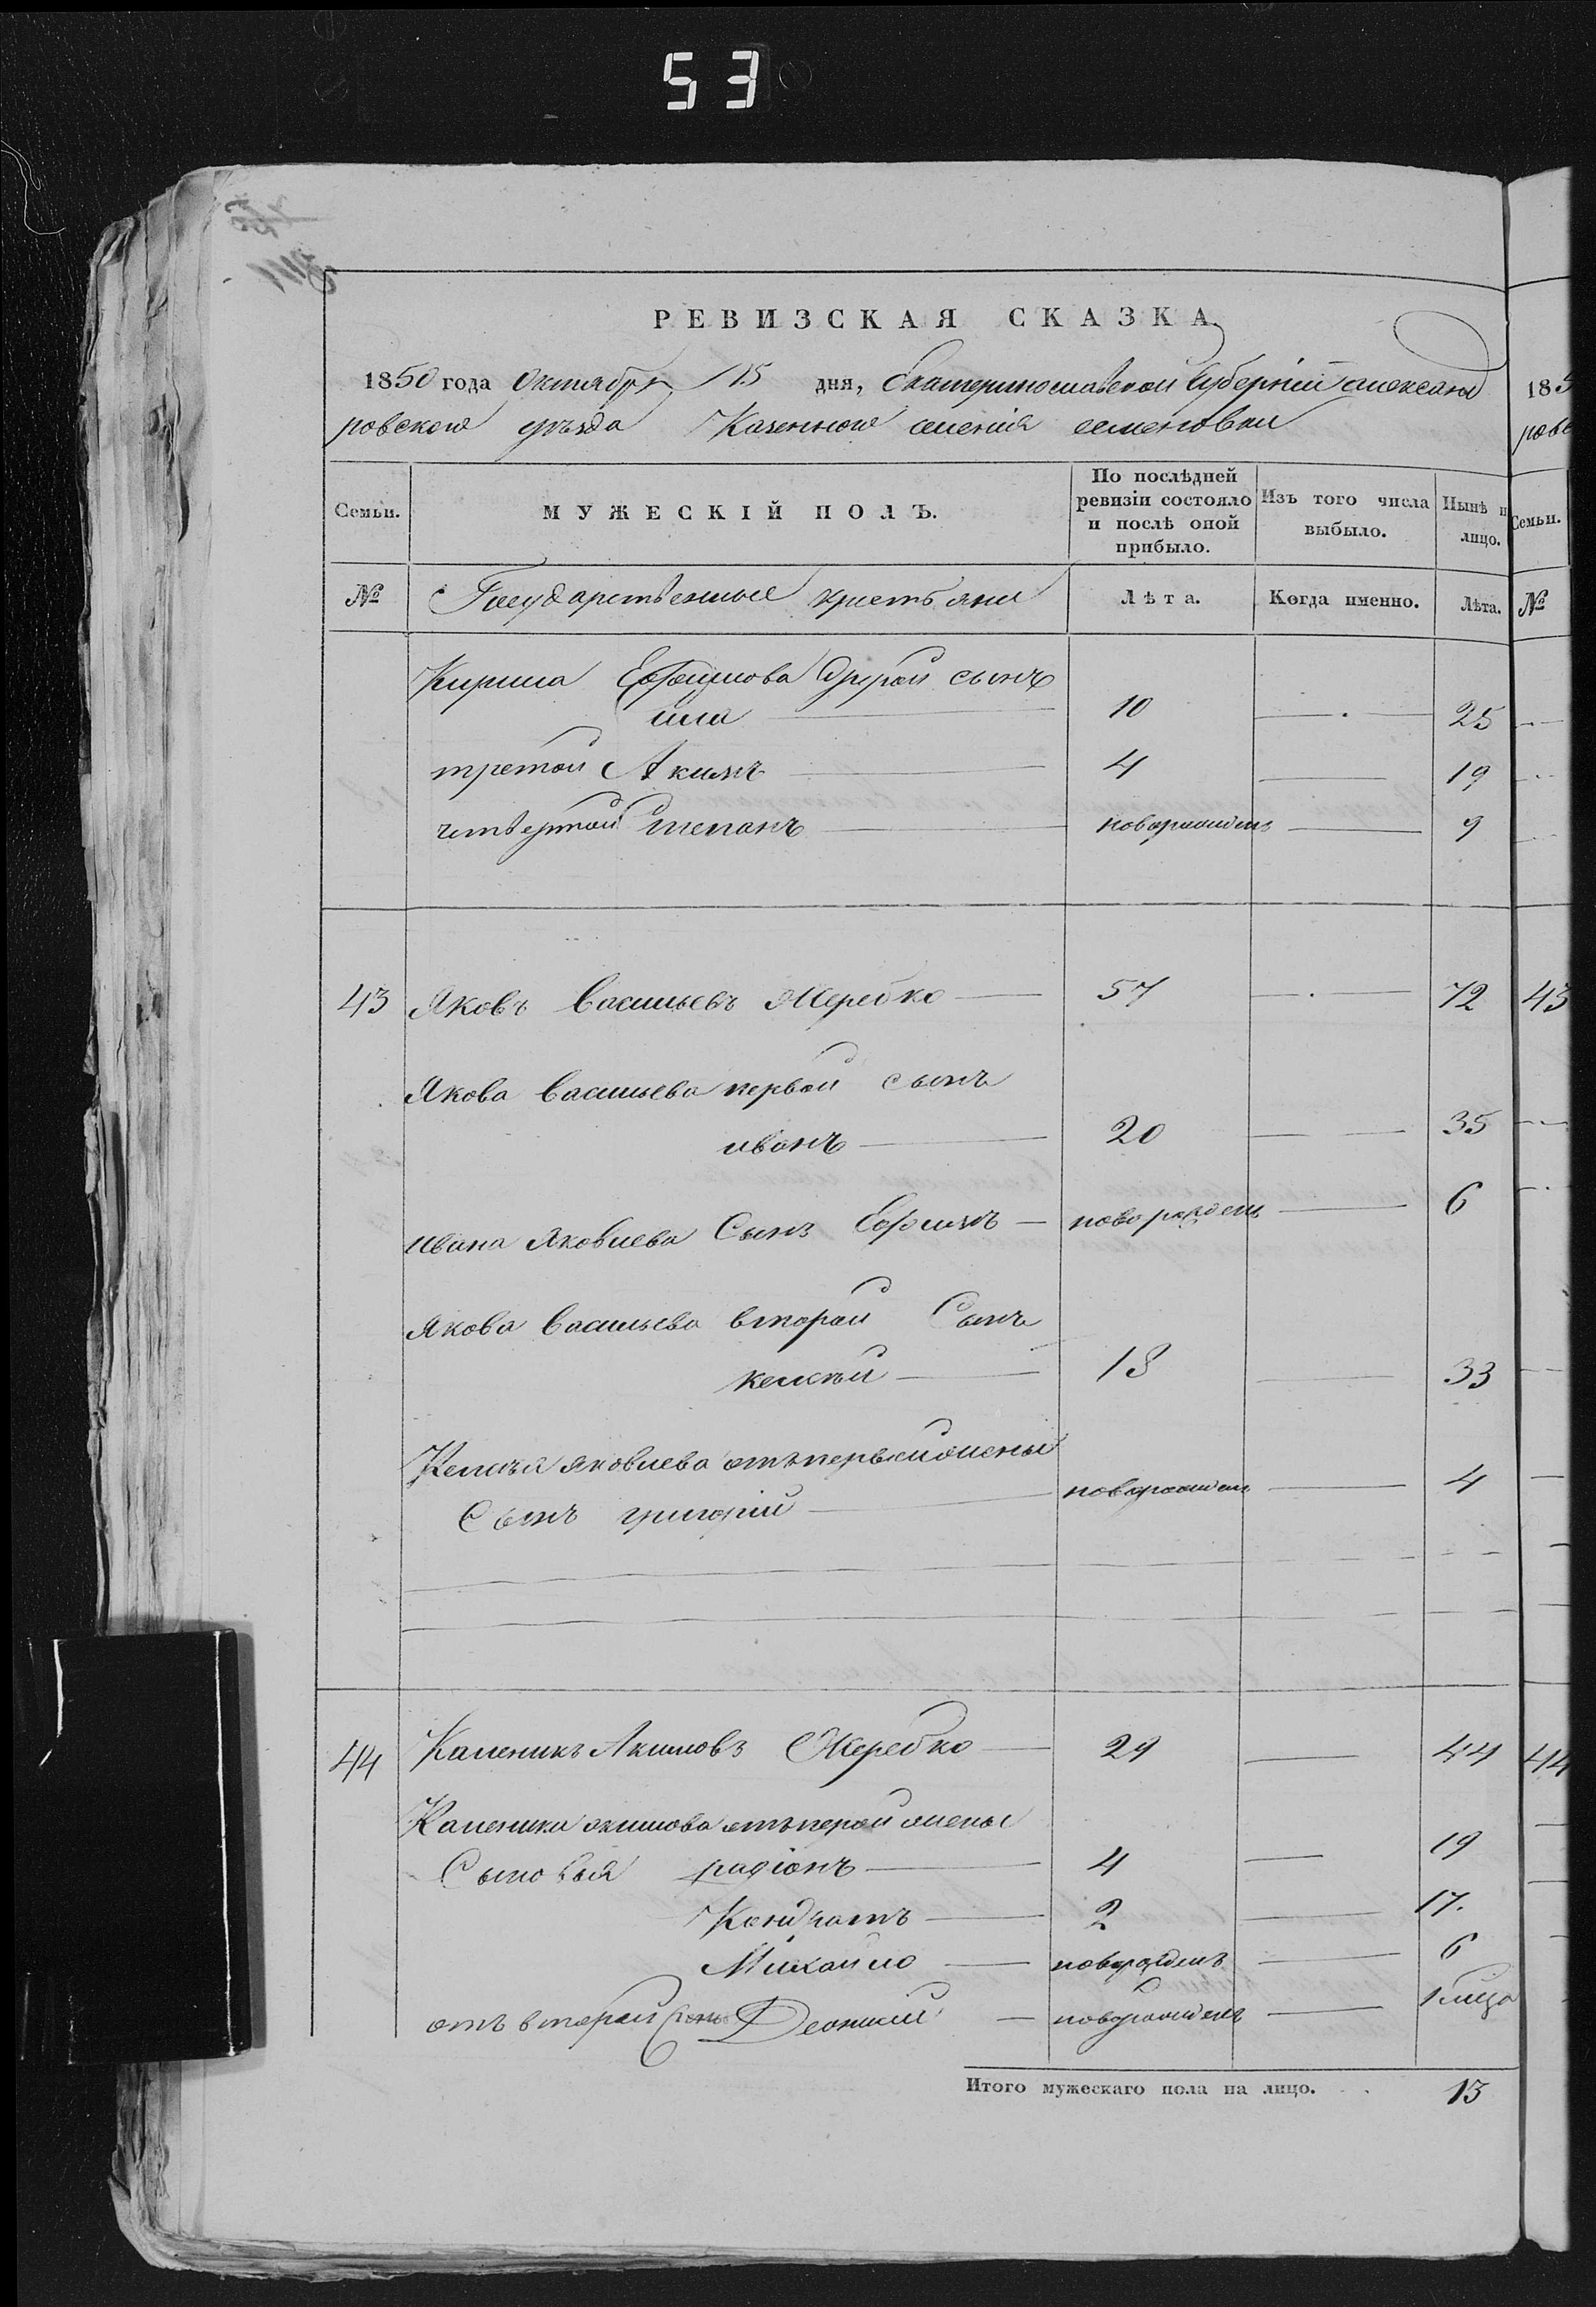 53
РЕВИЗСКАЯ СКАЗКА
1850 года Октября 15 дня, Екатеринославской Губерніи александ
ровского уезда Казенного селенія семеновки
Семьи. МУЖЕСКІЙ ПОЛЪ. По послѣдней ревизіи состояло и послѣ оной прибыло. Изъ того числа выбыло. Нынѣ н лицо.
№ Государственные Лѣта. Когда именно. Лѣта.
Кирила сынъ
10 25
третой Акимъ 4 19
четвертой Степанъ новорожденъ 9
43 Яковъ Васильевъ Жеребко 57 72
Якова Васильева первой сынъ
иванъ 20 35
ивана Яковлева Сынъ Ефимъ новорожденъ 6
Якова Васильева второй Сынъ
18 33
Яковлева отъ первой жены
Сынъ григорій новорожденъ 4
44 Каленикъ Акимовъ Жеребко 29 44
Каленика акимова отъ перой жены
Сыновья радіонъ 4 19
Кондратъ 2 17.
Михайло новорожденъ 6
отъ второй новорожденъ
Итого мужескаго пола на лицо. 13
185
рове
Семьи.
№
43
44